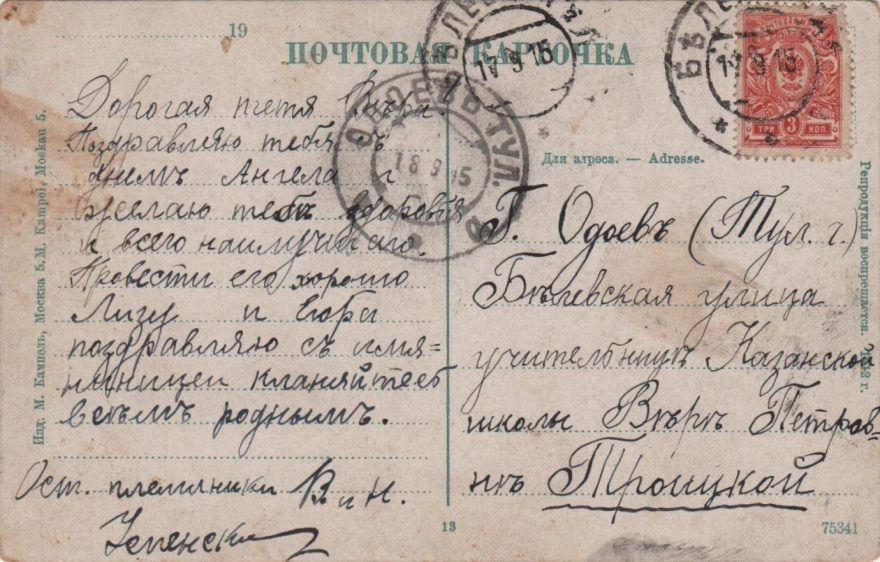 19
ПОЧТОВАЯ КАРТОЧКА
БѢЛЕВЪ
17 9 15
БѢЛЕВЪ
15
ОДОЕВЪ ТУЛ.
18 9 15
ТРИ 3 КОП
Для адреса. — Adresse.
Дорогая тетя Вѣра
Поздравляю тебя съ
днемъ Ангела и
желаю тебѣ здоровья
и всего наилучшаго.
Провести его хорошо
Лизу и
поздравляю съ имя=
нинницей кланяйтесь
всѣмъ роднымъ.
Ост. племянники В и Н.
Успенск
Г. Одоевъ (Тул. г.)
Бѣлевская улица
учительницѣ Казанской
школы Вѣрѣ Петров-
нѣ Троицкой
Изд. М. Кампель, Москва 5. M. Kampel, Moskau 5.
Репродукція воспрещается.
13
75341